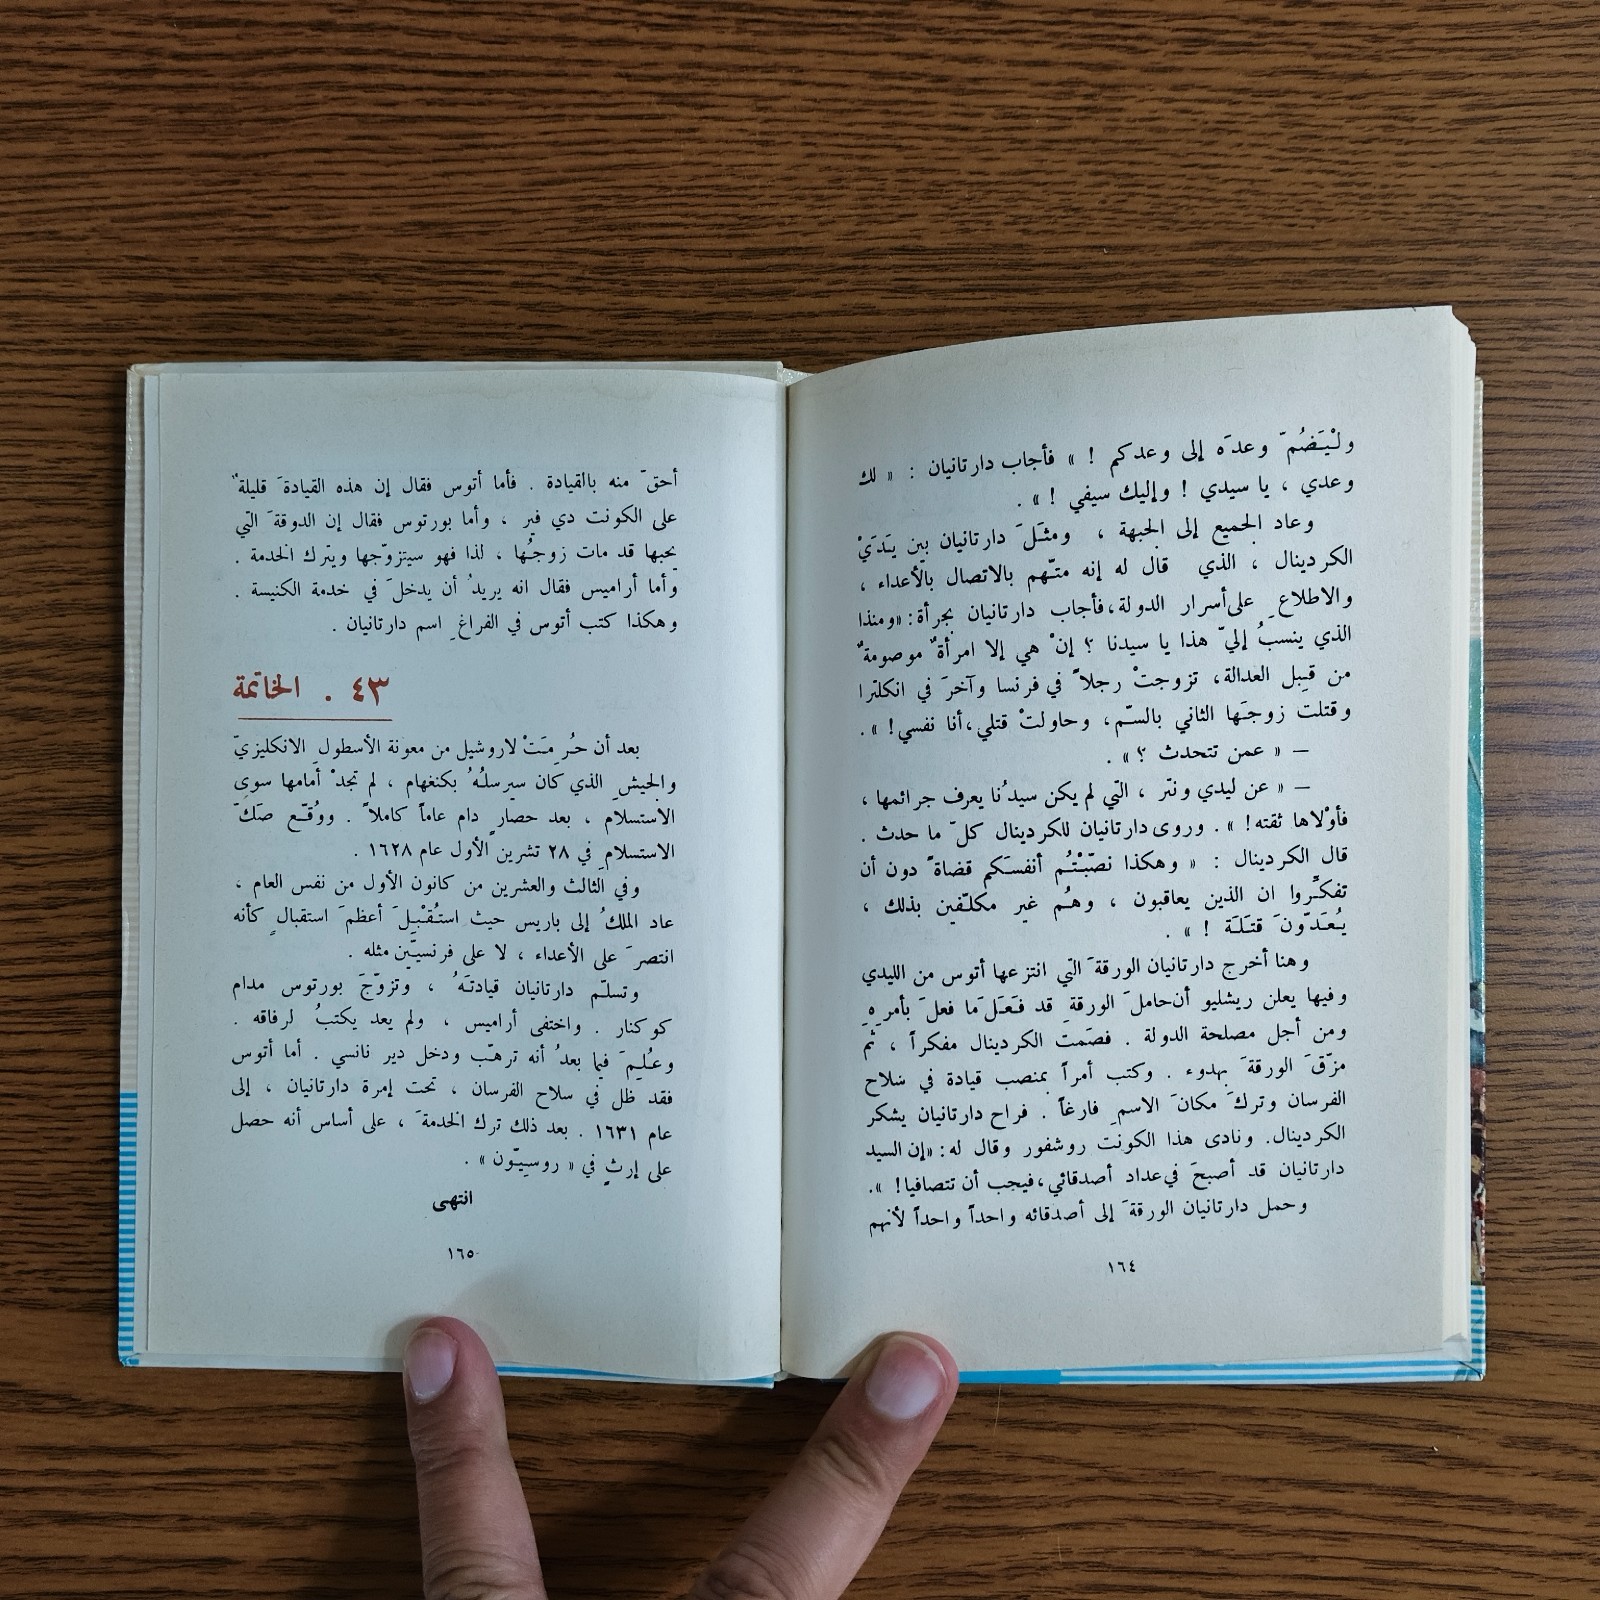 ولْيَضُمّ وعدَه إلى وعدكم ! » فأجاب دارتانيان : « لك
وعدي ، يا سيدي ! وإليك سيفي ! » .
وعاد الجميع إلى الجبهة ، ومثَلَ دارتانيان بين يَدَيْ
الكردينال ، الذي قال له إنه متّهم بالاتصال بالأعداء ،
والاطلاعِ على أسرار الدولة، فأجاب دارتانيان بجرأة: «ومنذا
الذي ينسبُ إليّ هذا يا سيدنا ؟ إنْ هي إلا امرأةٌ موصومةٌ
من قِبل العدالة، تزوجتْ رجلاً في فرنسا وآخرَ في انكلترا
وقتلت زوجَها الثاني بالسّم، وحاولتْ قتلي، أنا نفسي! » .
– « عمن تتحدث ؟ » .
– « عن ليدي ونتر ، التي لم يكن سيدُنا يعرف جرائمها ،
فأوْلاها ثقته! » . وروى دارتانيان للكردينال كلّ ما حدث .
قال الكردينال : « وهكذا نصّبْتُم أنفسَكم قضاةً دون أن
تفكّروا ان الذين يعاقبون ، وهُم غير مكلّفين بذلك ،
يُعَدّونَ قتَلَة ! » .
وهنا أخرج دارتانيان الورقةَ التي انتزعها أتوس من الليدي
وفيها يعلن ريشليو أن حاملَ الورقة قد فَعَلَ ما فعلَ بأمرِهِ
ومن أجل مصلحة الدولة . فصَمتَ الكردينال مفكراً ، ثم
مزّقَ الورقةَ بهدوء . وكتب أمراً بمنصب قيادة في سلاح
الفرسان وتركَ مكانَ الاسمِ فارغاً . فراح دارتانيان يشكر
الكردينال. ونادى هذا الكونت روشفور وقال له: «إن السيد
دارتانيان قد أصبحَ في عداد أصدقائي، فيجب أن تتصافيا! ».
وحمل دارتانيان الورقةَ إلى أصدقائه واحداً واحداً لأنهم
١٦٤
أحقّ منه بالقيادة . فأما أتوس فقال إن هذه القيادةَ قليلةٌ
على الكونت دي فير ، وأما بورتوس فقال إن الدوقةَ التي
يحبها قد مات زوجُها ، لذا فهو سيتزوّجها ويترك الخدمة .
وأما أراميس فقال انه يريدُ أن يدخلَ في خدمة الكنيسة .
وهكذا كتب أتوس في الفراغِ اسم دارتانيان .
٤٣ . الخاتمة
بعد أن حُرِمَتْ لاروشيل من معونة الأسطول الانكليزيّ
والجيشِ الذي كان سيرسلُهُ بكنغهام ، لم تجدْ أمامها سوى
الاستسلام ، بعد حصارٍ دام عاماً كاملاً . ووُقّع صَكّ
الاستسلامِ في ٢٨ تشرين الأول عام ١٦٢٨ .
وفي الثالث والعشرين من كانون الأول من نفس العام ،
عاد الملكُ إلى باريس حيث استُقْبِلَ أعظمَ استقبالٍ كأنه
انتصرَ على الأعداء ، لا على فرنسيّين مثله .
وتسلّم دارتانيان قيادتَهُ ، وتزوّجَ بورتوس مدام
كوكنار . واختفى أراميس ، ولم يعد يكتبُ لرفاقه .
وعُلِمَ فيما بعدُ أنه ترهّب ودخل دير نانسي . أما أتوس
فقد ظل في سلاح الفرسان ، تحت إمرة دارتانيان ، إلى
عام ١٦٣١ . بعد ذلك ترك الخدمةَ ، على أساس أنه حصل
على إرثٍ في « روسِيّون » .
انتهى
١٦٥